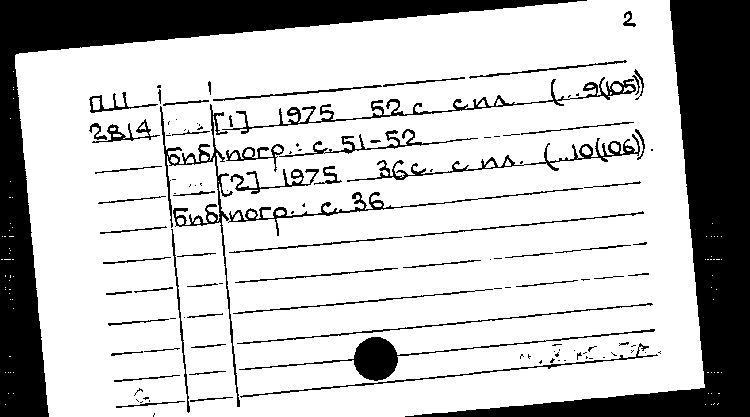 2
П11
2814 [1] 1975 52с. с ил. (...9(105))
библиогр.: с. 51-52
[2] 1975 36с. с ил. (...10(106)).
библиогр.: с. 36.